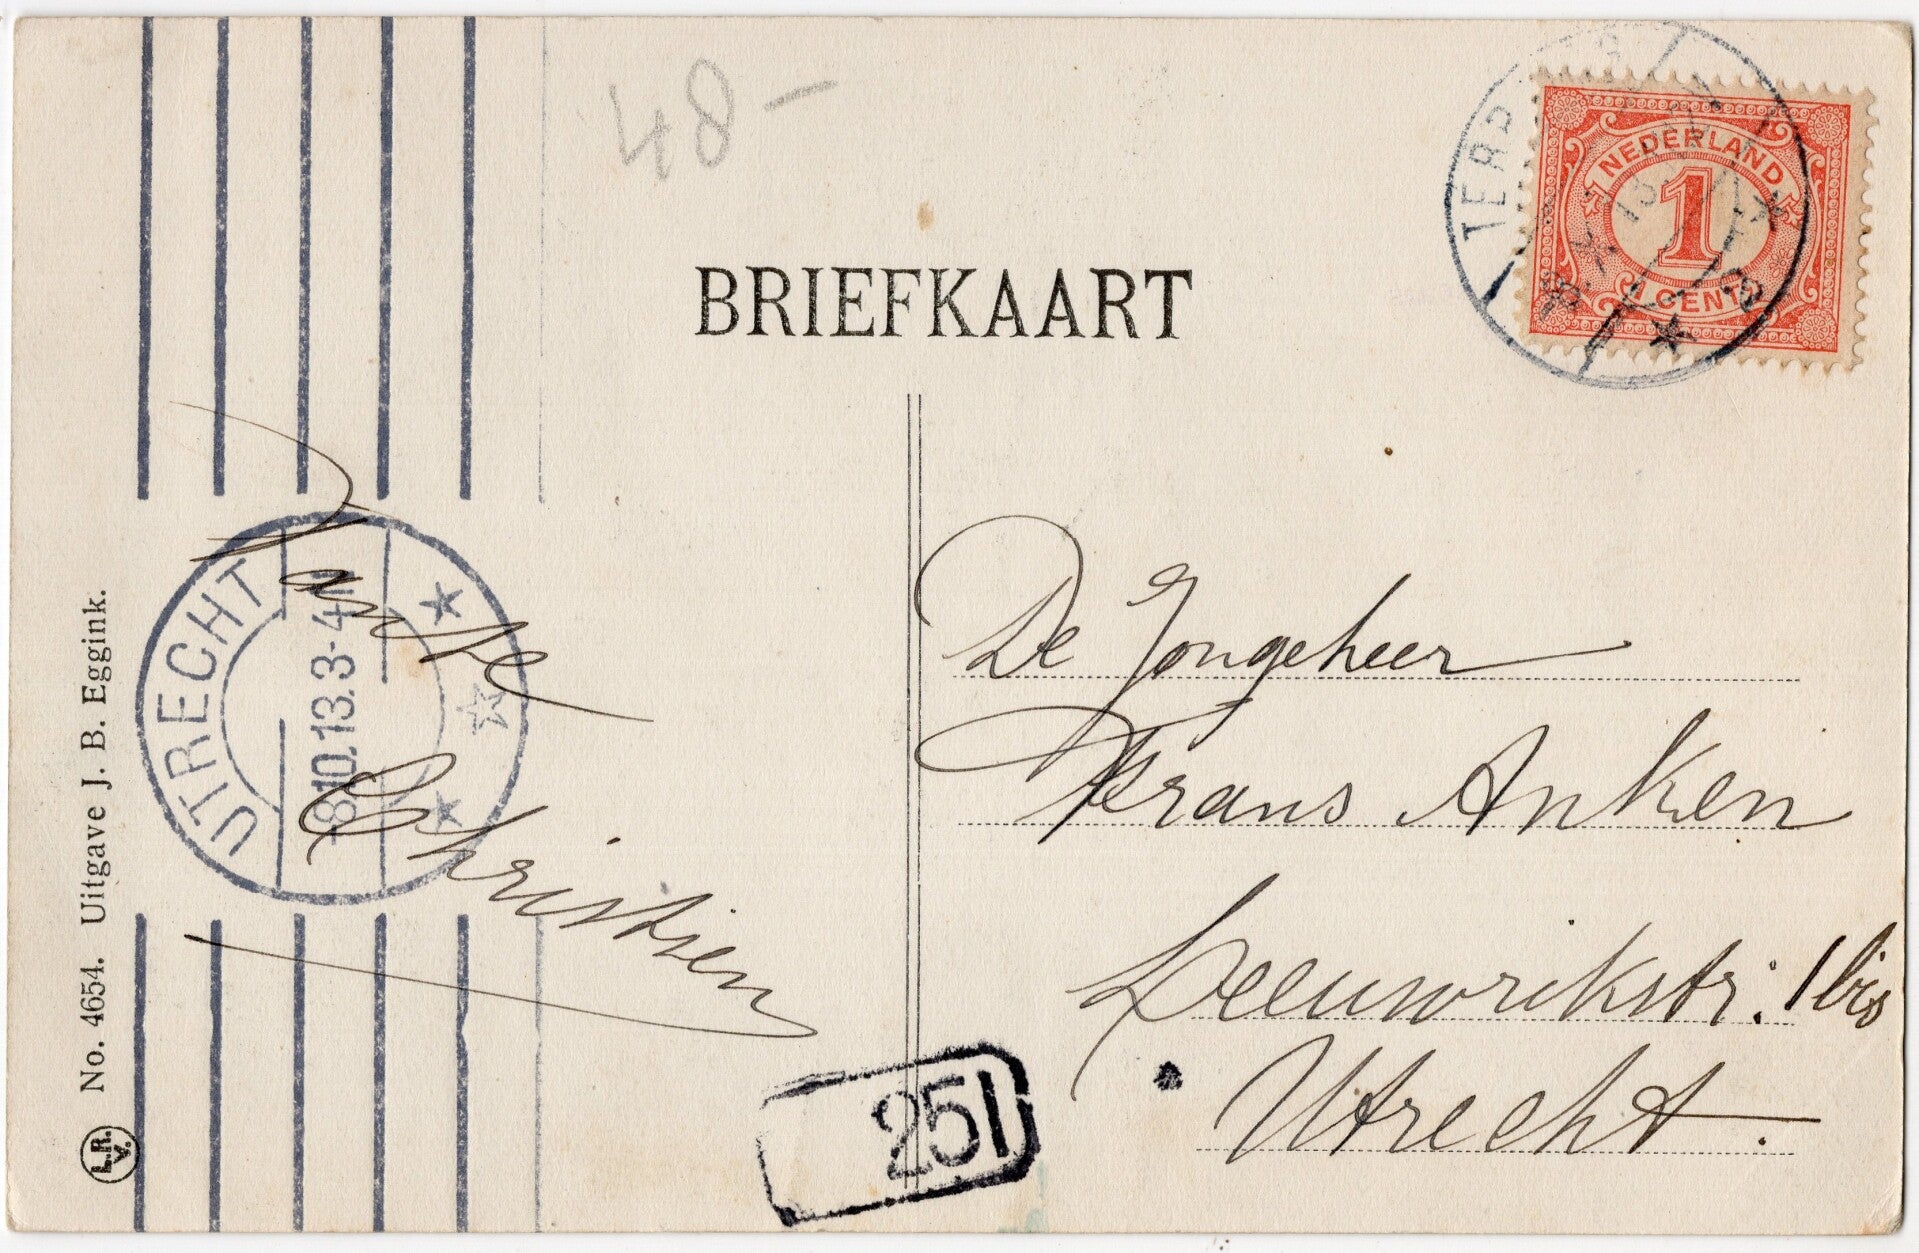 48-
NEDERLAND
1
1 CENT
BRIEFKAART
UTRECHT
-8.10.13.3-4N
Tante
Christien
De Jongeheer
Frans Anken
Leeuwrikstr. 1 bis
Utrecht.
251
No. 4654. Uitgave J. B. Eggink.
L.R.
V.